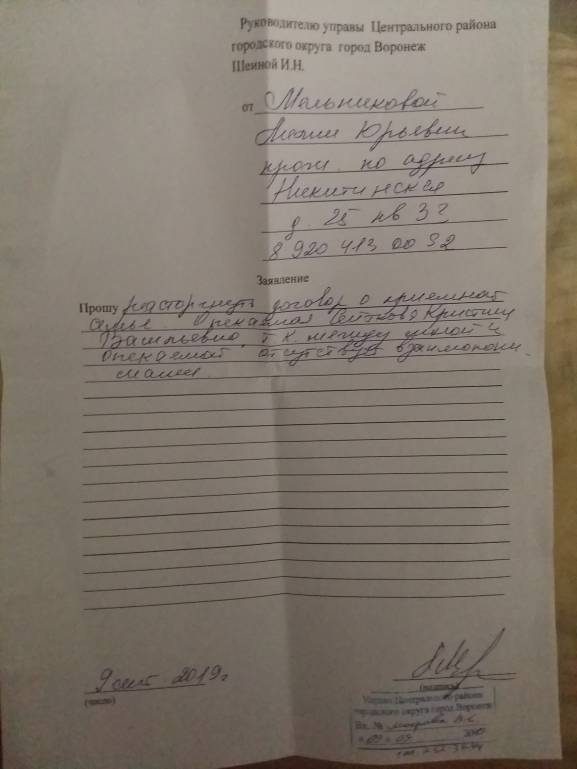 Руководителю управы Центрального района
городского округа город Воронеж
Шеиной И.Н.
от Мельниковой
Юрьевны
прож. по адресу
Никитинская
д. 25 кв 32
8 920 413 00 92
Заявление
Прошу расторгнуть договор о приемной
семье. Опекаемая Кристина
Васильевна, т.к. между мной и
опекаемой отсутствует взаимопони
мание.
9 сент 2019г
(число)
(подпись)
Управа Центрального района
городского округа город Воронеж
Вх. №